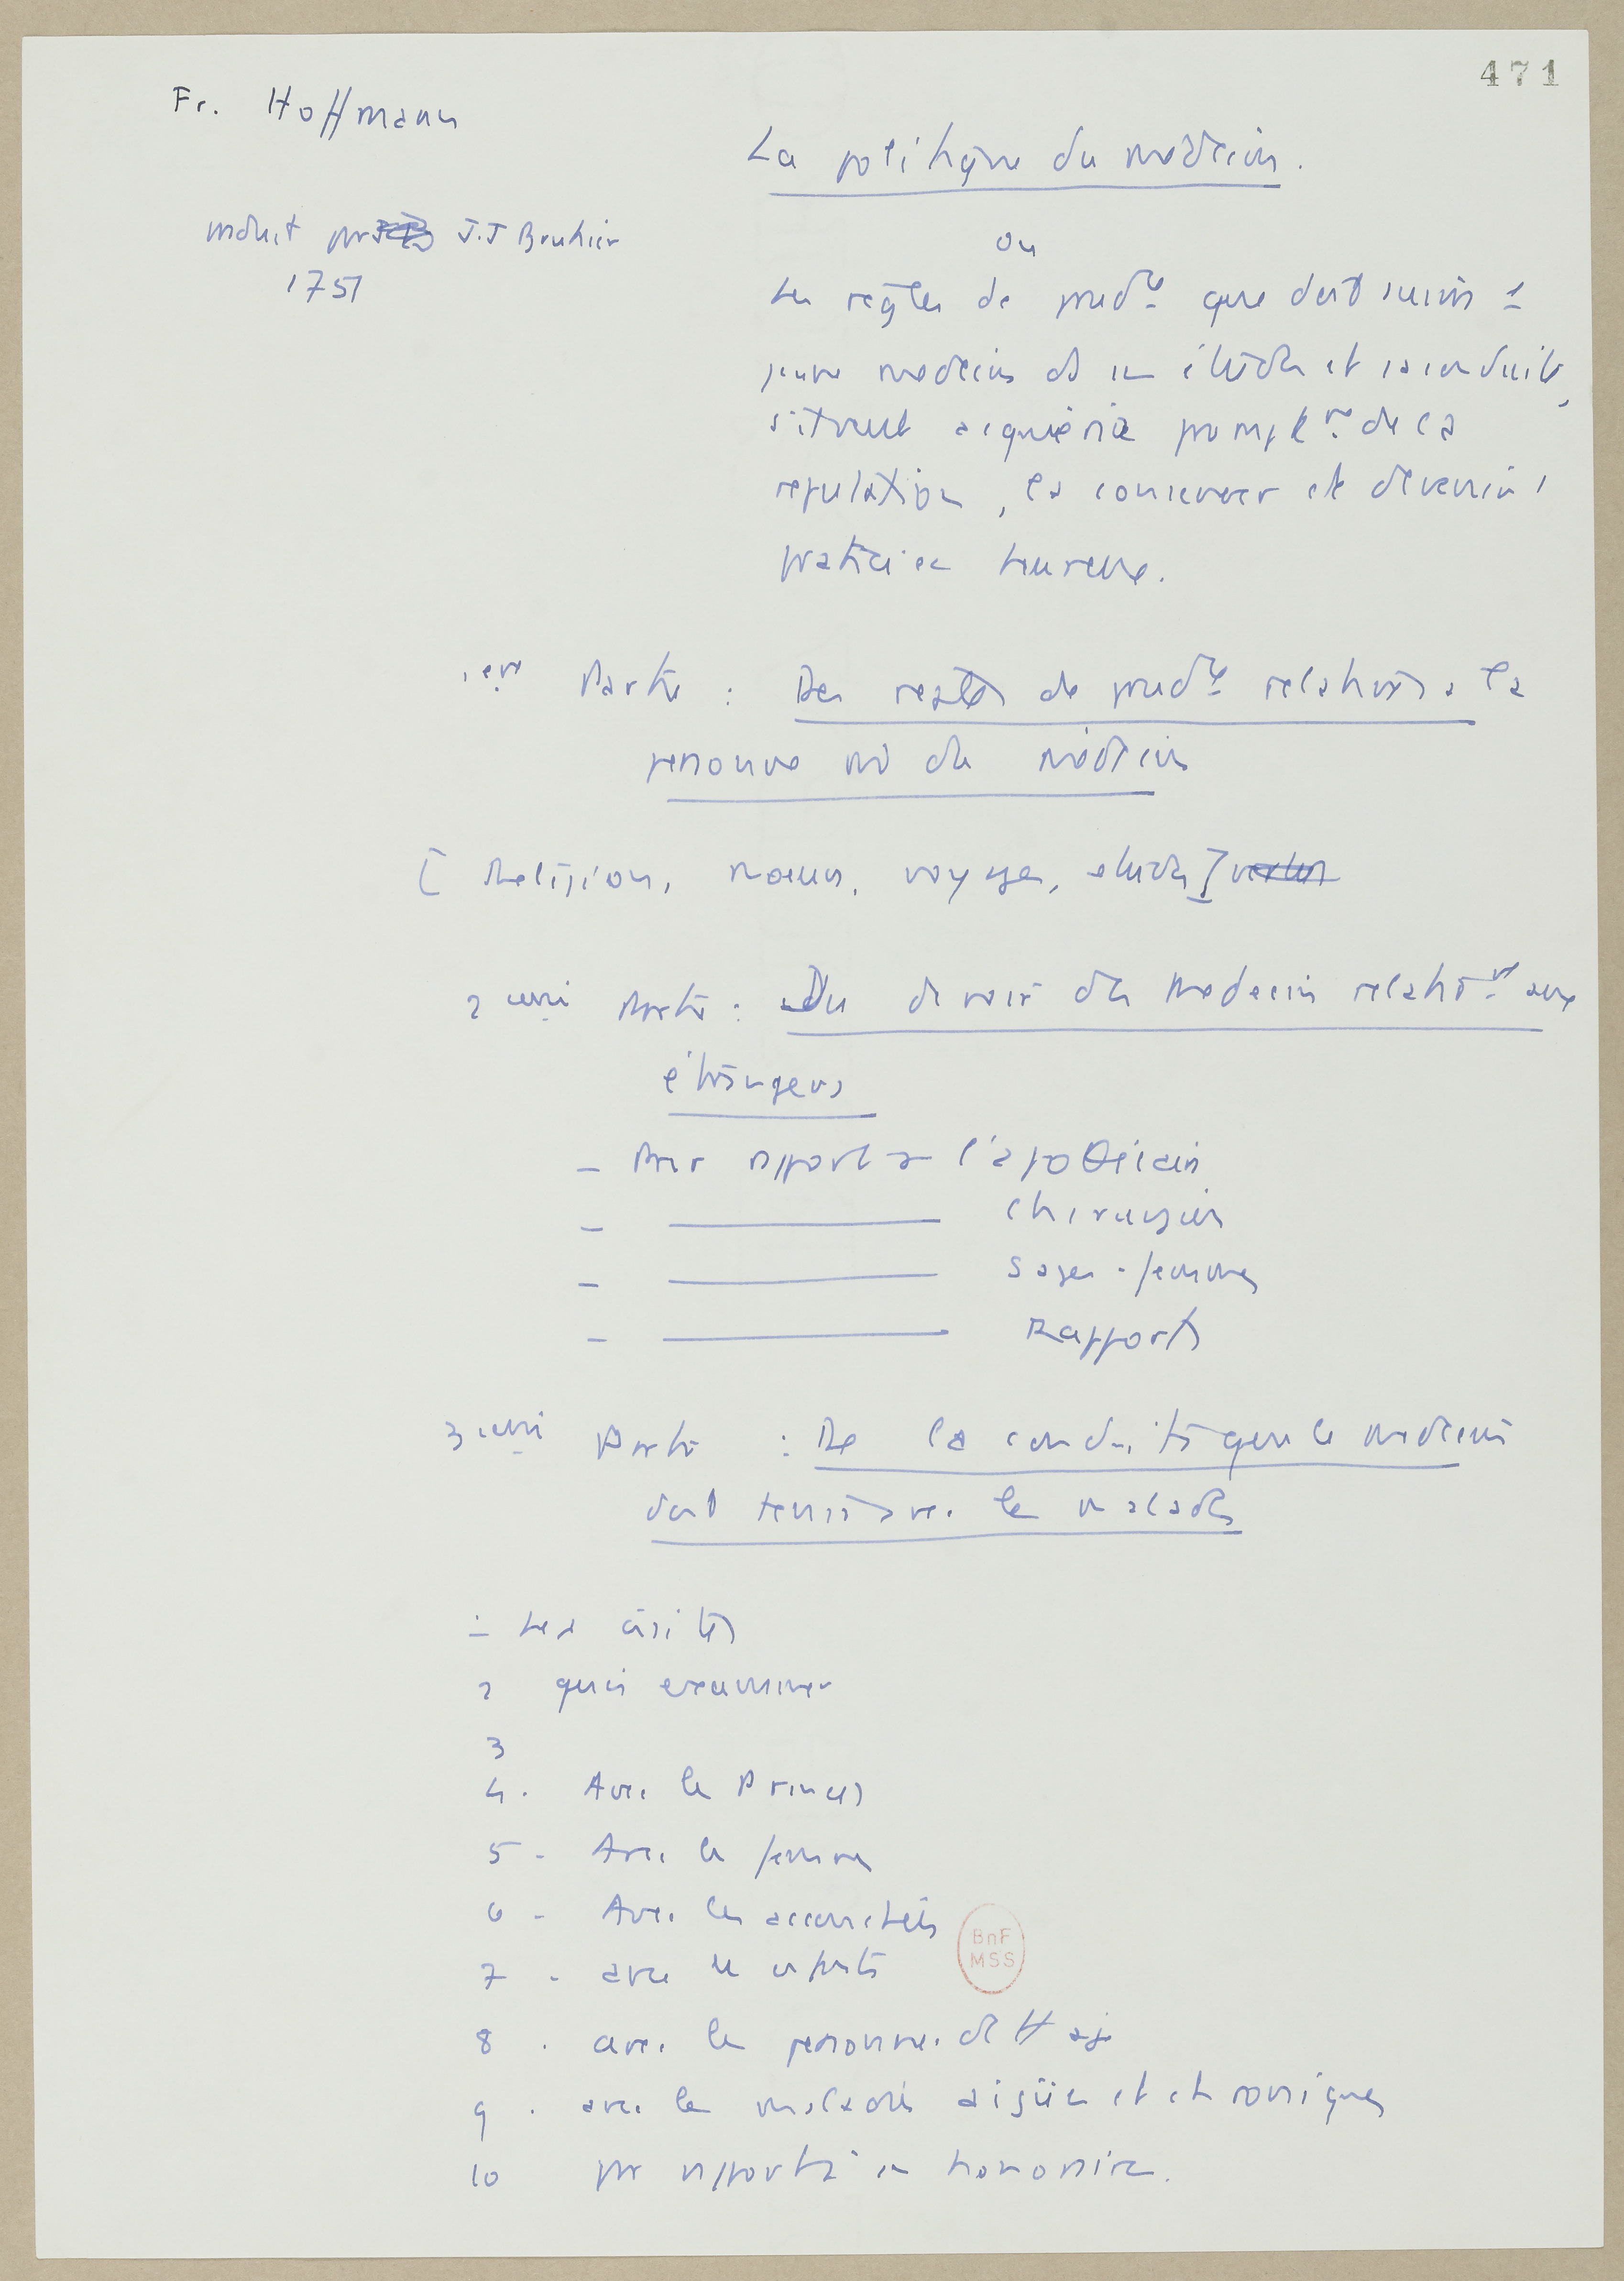 471
Fr. Hoffmann
La politique du médecin.
traduit par J.J Bruhier
1751
ou
Les règles de prud^ce que doit suivre 1
jeune médecin ds ses études et sa conduite,
s'il veut acquérir prompt^mt de la
reputation, la conserver et devenir 1
praticien heureux.
1ere Partie : Des regles de prud^ce relatives a la
personne m du médecin
[ Religion, moeurs, voyages, études ] vertus
2eme Partie : Du devoir du medecin relativ^t aux
étrangers
- Par rapport a l'apothicaire
- ——— Chirurgien
- ——— Sages-femmes
- ——— Rapports
3eme Partie : De la conduite que le medecin
doit tenir avec les malades
1 Les visites
2 quoi examiner
3
4. Avec les Princes
5 - Avec les femmes
6 - Avec les accouchées
7 - avec les enfants
8 . avec les personnes d'1 H age
9 . avec les maladies aigües et chroniques
10 par rapport à ses honoraires.
BnF
MSS